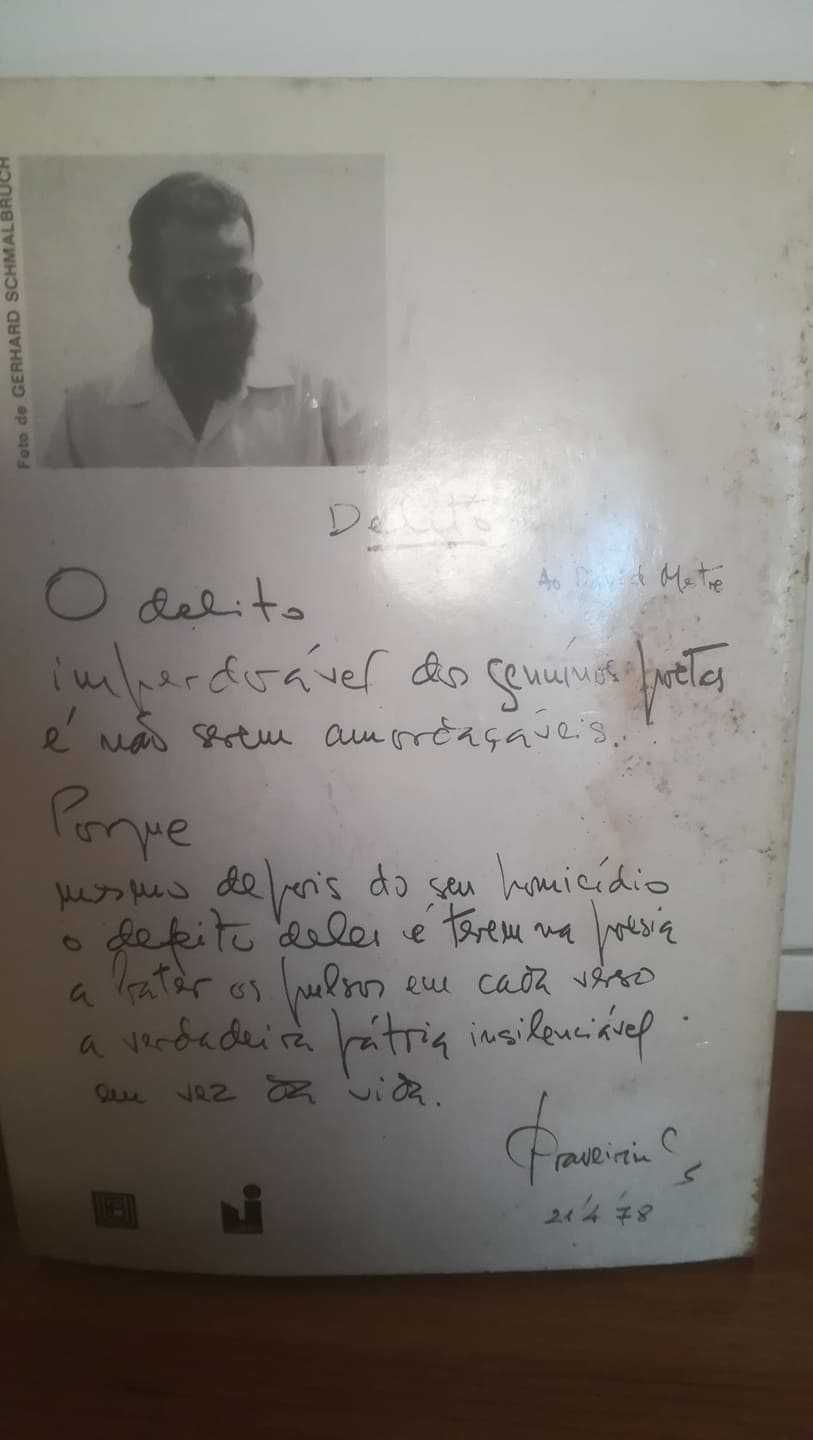 Foto de GERHARD SCHMALBRUCH
Delito
Ao David Mestre
O delito
imperdoável dos genuínos poetas
é não serem amordaçáveis.
Porque
mesmo depois do seu homicídio
o defeito deles é terem na poesia
a bater os pulsos em cada verso
a verdadeira pátria insilenciável
em vez da vida.
Craveirinha
21/4/78